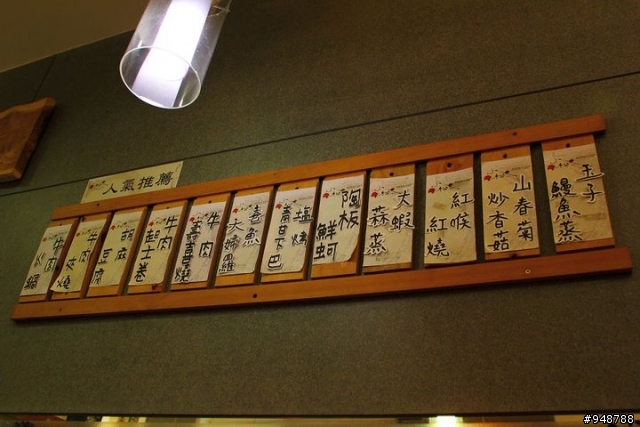 人氣推薦
玉子
鰻魚蒸
山春菊
炒香菇
紅喉
紅燒
大蝦
蒜蒸
陶板
鮮蚵
塩烤
青甘下巴
喜魚
天婦羅
牛肉
壽喜燒
牛肉
起士卷
胡麻
豆腐
牛肉
火鍋
#948788